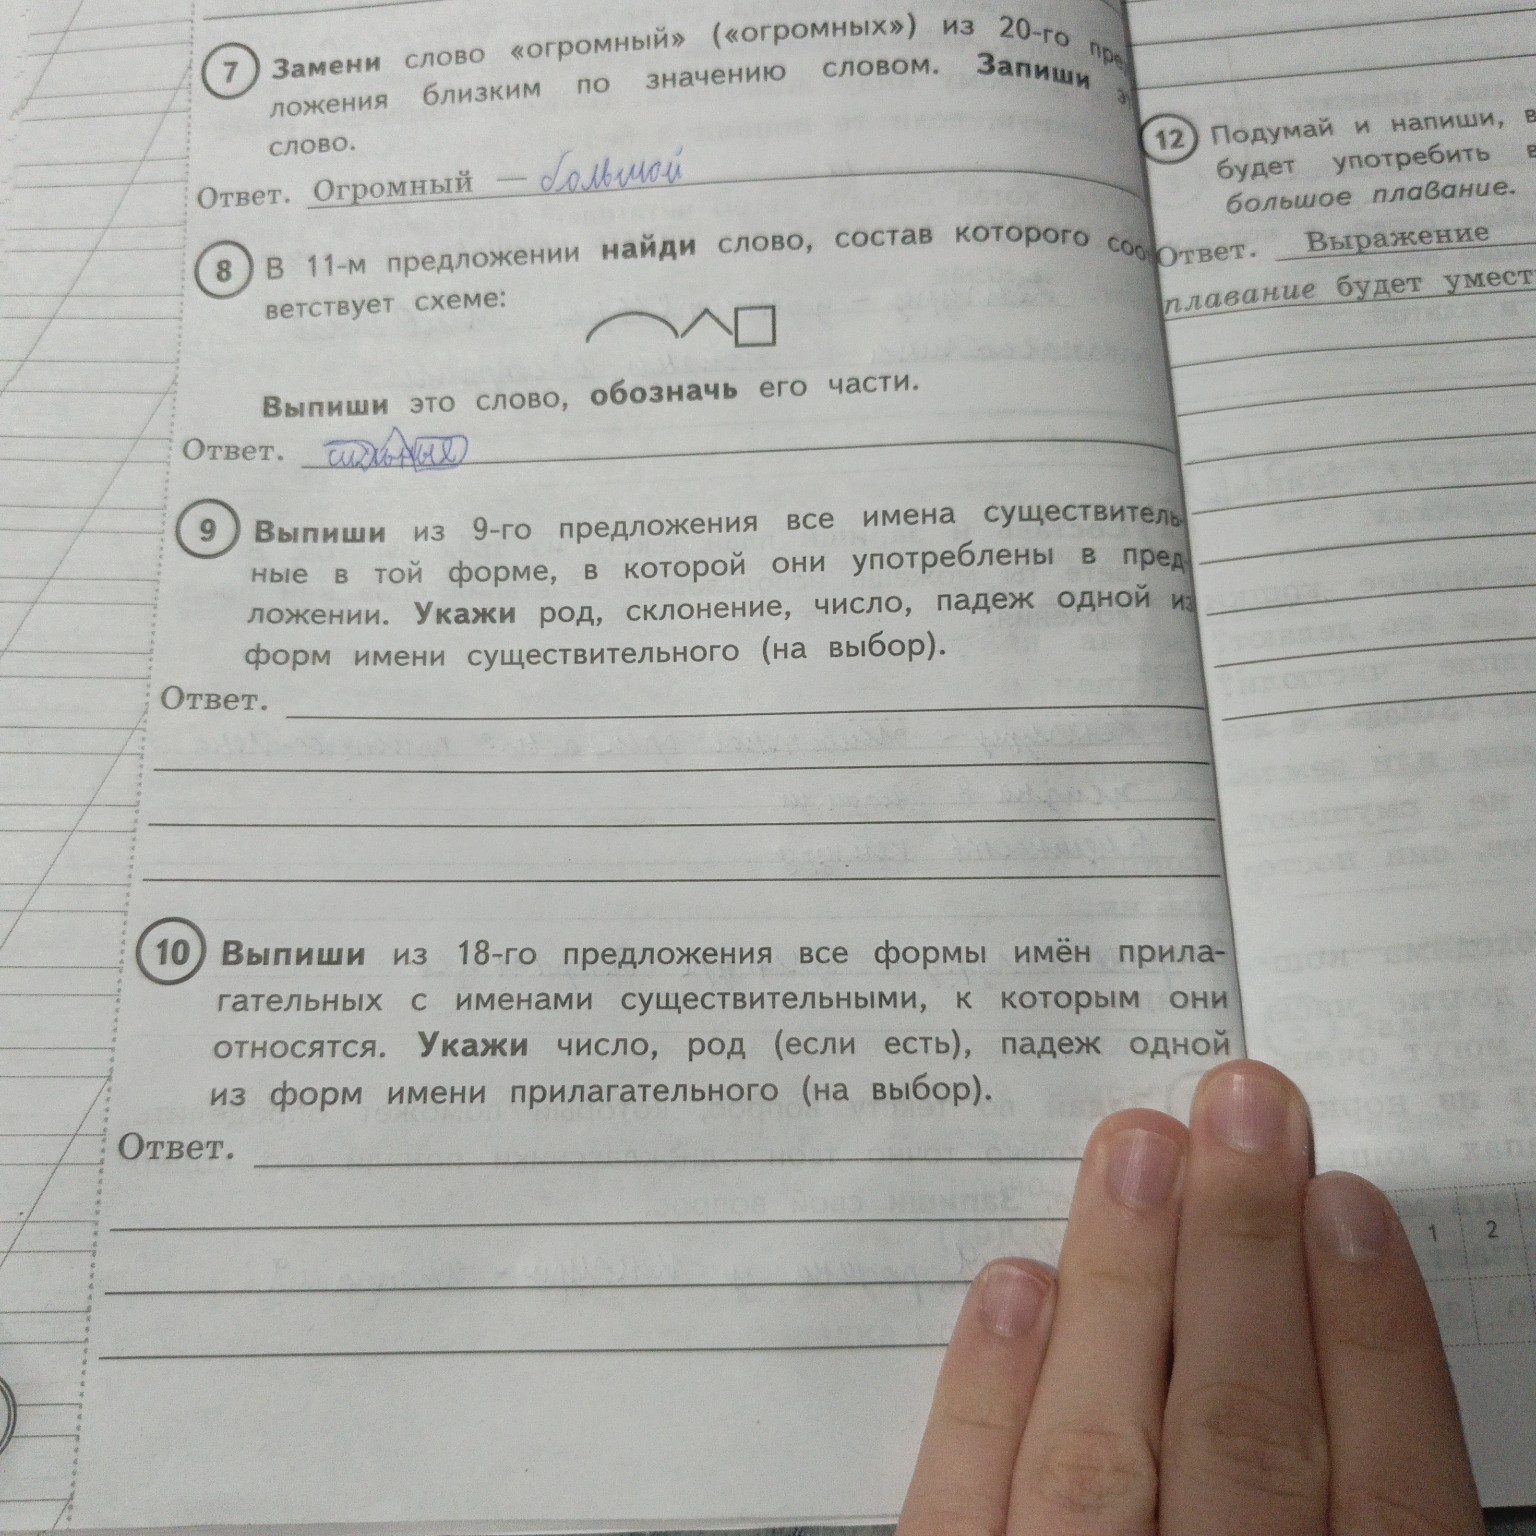 7 Замени слово «огромный» («огромных») из 20-го пред
ложения близким по значению словом. Запиши э
слово.
Ответ. Огромный — большой
8 В 11-м предложении найди слово, состав которого соо
ветствует схеме:
Выпиши это слово, обозначь его части.
Ответ. сильные
9 Выпиши из 9-го предложения все имена существитель-
ные в той форме, в которой они употреблены в пред-
ложении. Укажи род, склонение, число, падеж одной из
форм имени существительного (на выбор).
Ответ.
10 Выпиши из 18-го предложения все формы имён прила-
гательных с именами существительными, к которым они
относятся. Укажи число, род (если есть), падеж одной
из форм имени прилагательного (на выбор).
Ответ.
12 Подумай и напиши, в
будет употребить в
большое плавание.
Ответ. Выражение
плавание будет умест
1 2